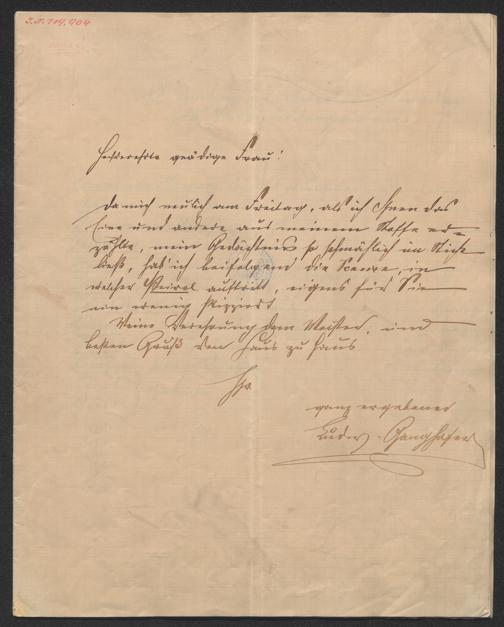 I.N. 119.404
Hochverehrte gnädige Frau!
Da mich neulich am Freitag, als ich Ihnen das
Eine und andere aus meinem Stoffe er-
zählte, mein Gedächtnis so schmählich im Stich
ließ, hab' ich beifolgend die Scene, in
welcher auftritt, eigens für Sie
ein wenig skizziert.
Meine Verehrung dem Meister, und
besten Gruß von Haus zu Haus
Ihr
ganz ergebener
Ludw. Ganghofer